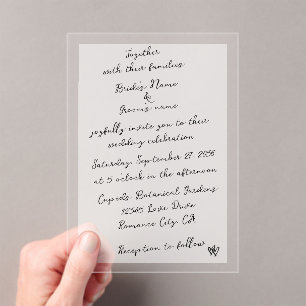 Together
with their families
Bride's Name
&
Groom's name
joyfully invite you to their
wedding celebration
Saturday September 27 2055
at 5 o'clock in the afternoon
Cupid's Botanical Gardens
12345 Love Drive
Romance City CA
Reception to follow